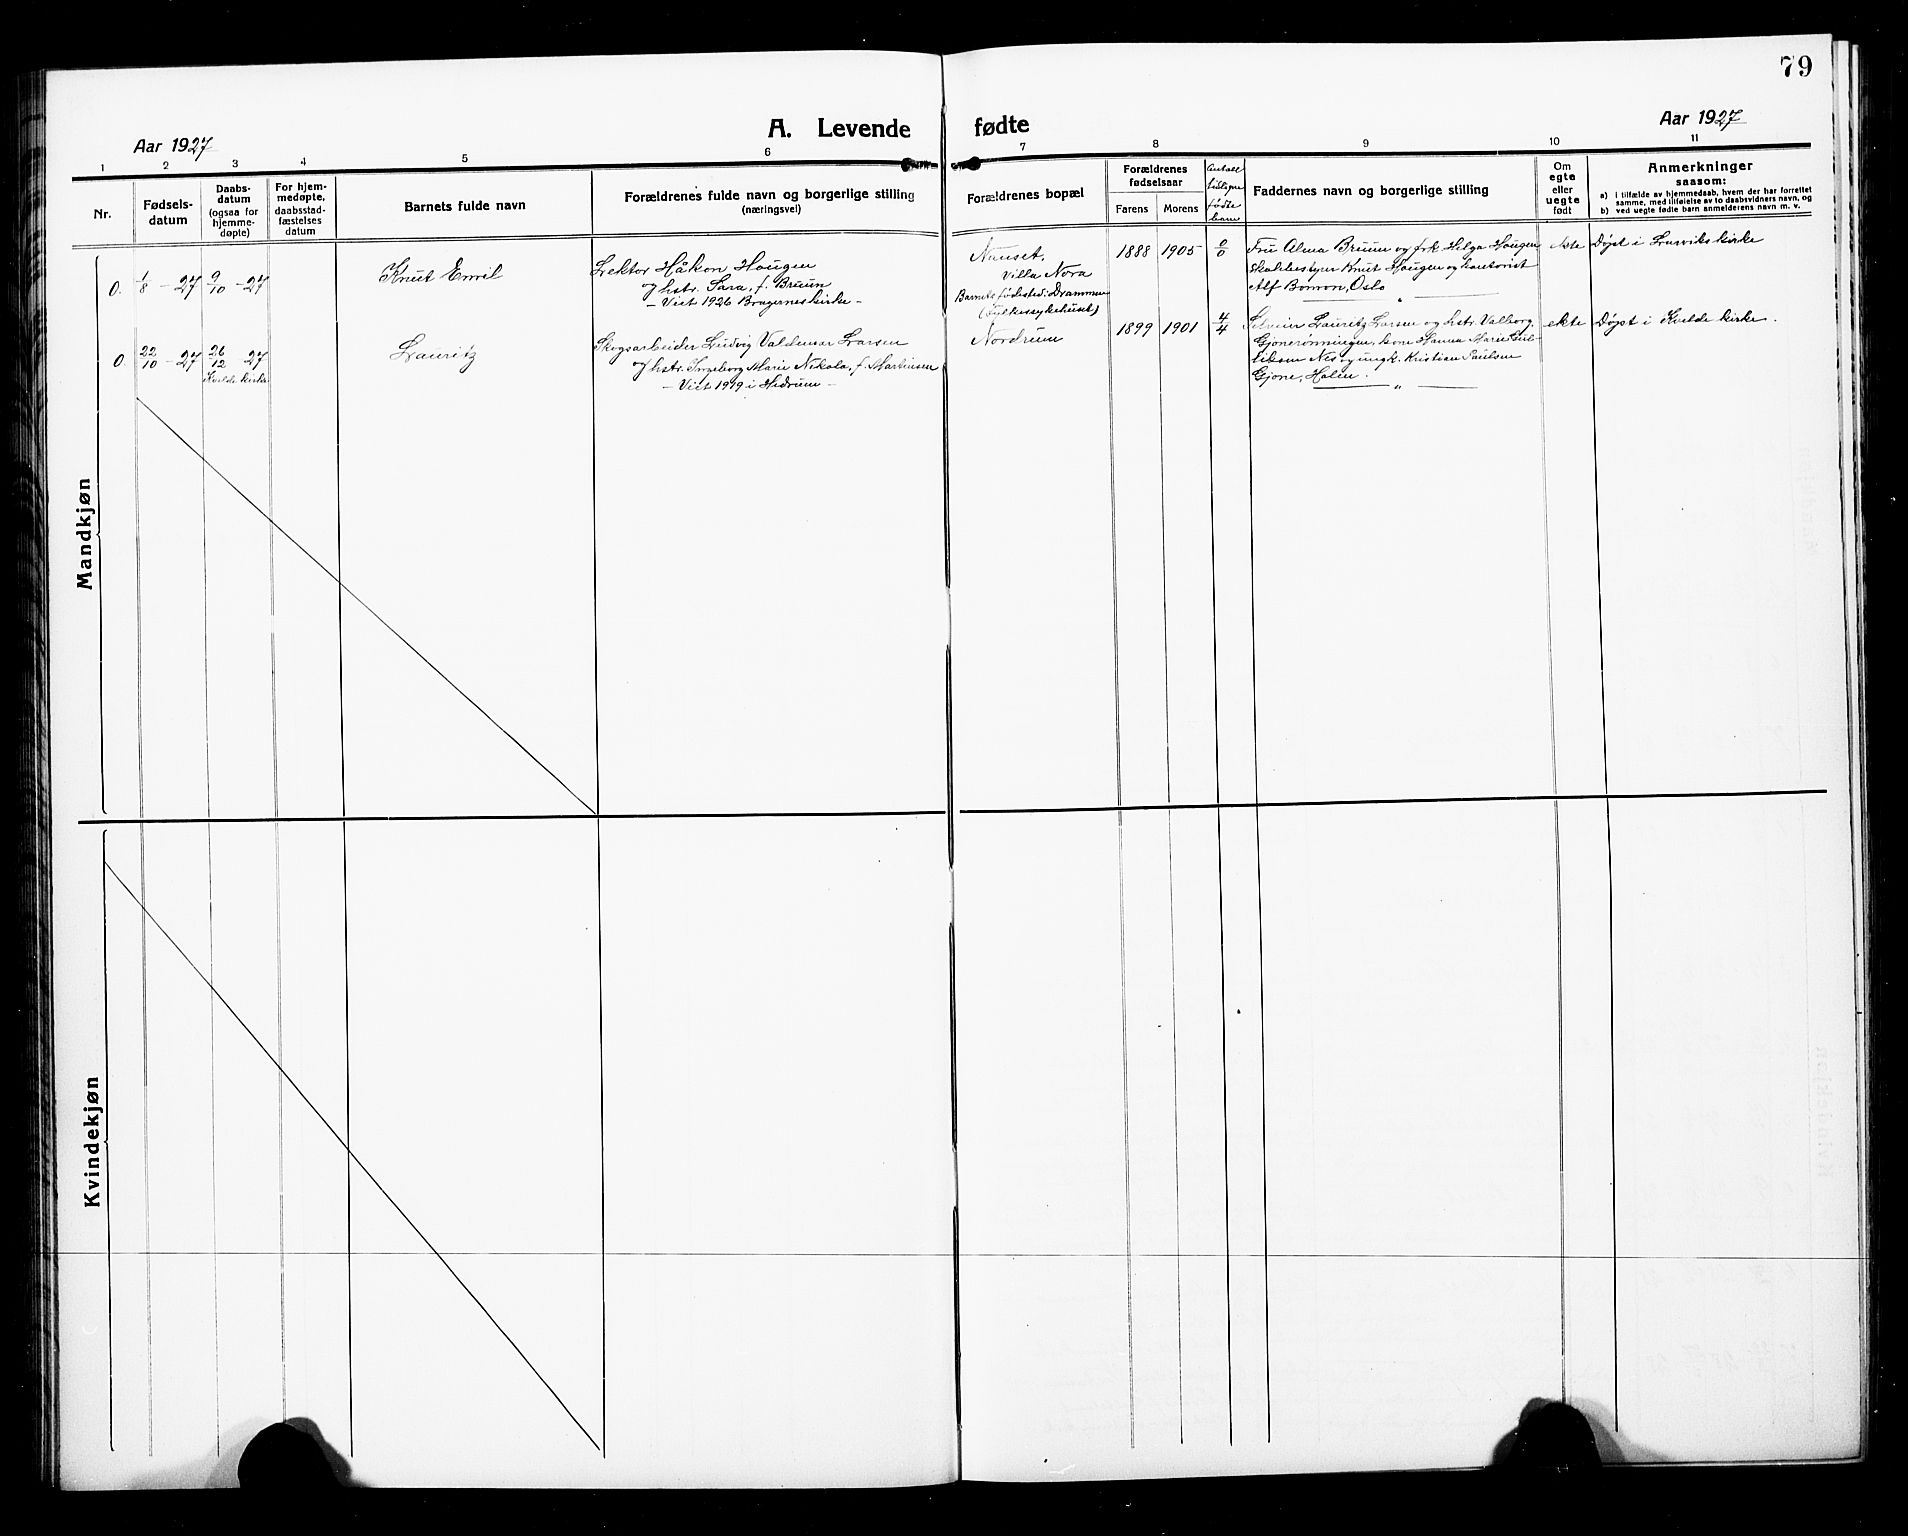 79
A. Levende fødte
Aar 1927
Aar 1927
1 2 3 4 5 6 7 8 9 10 11
Nr.
Fødsels-
datum
Daabs-
datum
(ogsaa for
hjemme-
døpte)
For hjem-
medøpte,
daabsstad-
fæstelses
datum
Barnets fulde navn
Forældrenes fulde navn og borgerlige stilling
(næringsvei)
Forældrenes bopæl
Forældrenes
fødselsaar
Farens Morens
Antall
tidligere
fødte
barn
Faddernes navn og borgerlige stilling
Om
egte
eller
uegte
født
Anmerkninger
saasom:
a) i tilfælde av hjemmedaab, hvem der har forrettet
samme, med tilføielse av to daabsvidners navn, og
b) ved uegte fødte barn anmelderens navn m. v.
Mandkjøn
0. 1/8 - 27 9/10 - 27
Knut Emil
Lektor Håkon Haugen
og hstr. Sara, f. Bruun
- Viet 1926 Bragernes kirke -
Nanset,
Villa Nora
Barnets fødested: Drammen
(Fylkessykehuset)
1888 1905 0/0
Fru Alma Bruun og frk Helga Haugen
skolebestyrer Knut Haugen og kontorist
Alf Bomon, Oslo
"
ekte
Døpt i Larviks kirke
0. 22/10 - 27 26/12 - 27
Kvelde kirke
Lauritz
Skogsarbeider Ludvig Valdemar Larsen
og hstr. Ingeborg Marie Nikola, f. Martinsen
- Viet 1919 i Hedrum -
Nordrum
1899 1901 4/4
Lauritz Larsen og hstr. Valborg,
Gjonerønningen, kone Hanna Marie
Nes og ungk. Kristian Paulsen
Gjone, Holen.
"
ekte
Døpt i Kvelde kirke.
Kvindekjøn